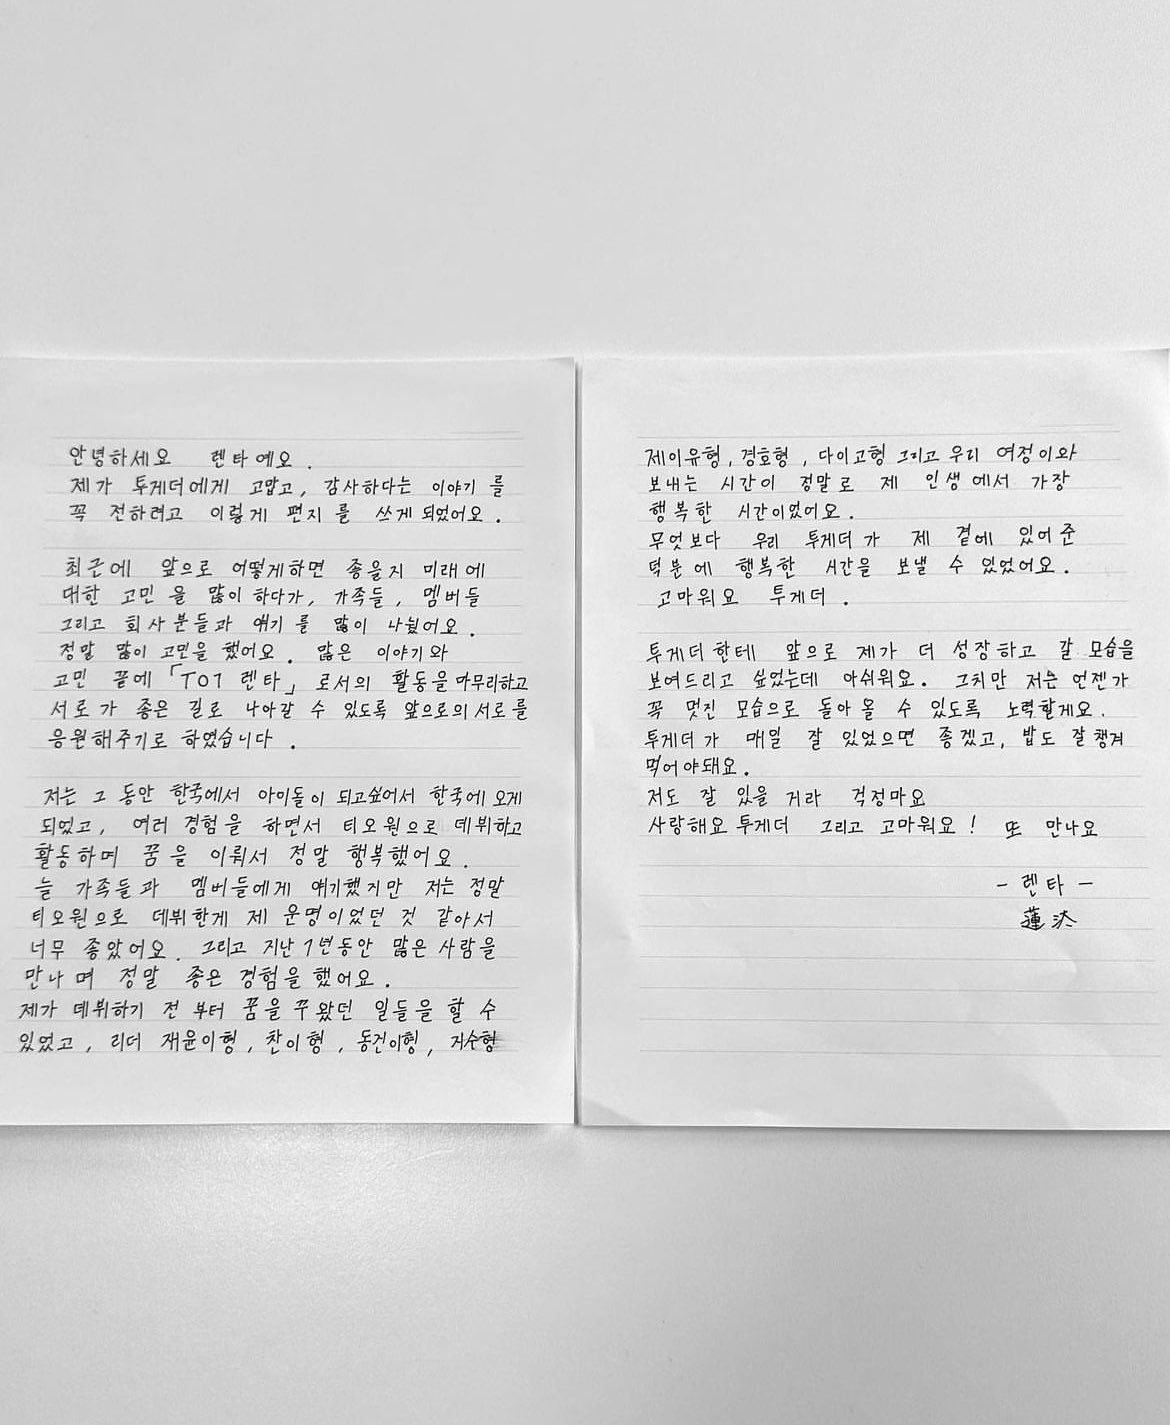 안녕하세요 렌타예요.
제가 투게더에게 고맙고, 감사하다는 이야기를
꼭 전하려고 이렇게 편지를 쓰게 되었어요.
최근에 앞으로 어떻게하면 좋을지 미래에
대한 고민을 많이 하다가, 가족들, 멤버들
그리고 회사분들과 얘기를 많이 나눴어요.
정말 많이 고민을 했어요. 많은 이야기와
고민 끝에 「TO1 렌타」로서의 활동을 마무리하고
서로가 좋은 길로 나아갈 수 있도록 앞으로의 서로를
응원해주기로 하였습니다.
저는 그 동안 한국에서 아이돌이 되고싶어서 한국에 오게
되었고, 여러 경험을 하면서 티오원으로 데뷔하고
활동하며 꿈을 이뤄서 정말 행복했어요.
늘 가족들과 멤버들에게 얘기했지만 저는 정말
티오원으로 데뷔한게 제 운명이었던 것 같아서
너무 좋았어요. 그리고 지난 1년동안 많은 사람을
만나며 정말 좋은 경험을 했어요.
제가 데뷔하기 전부터 꿈을 꾸왔던 일들을 할 수
있었고, 리더 재윤이형, 찬이형, 동건이형, 지수형
제이유형, 경호형, 다이고형 그리고 우리 여정이와
보내는 시간이 정말로 제 인생에서 가장
행복한 시간이었어요.
무엇보다 우리 투게더가 제 곁에 있어준
덕분에 행복한 시간을 보낼 수 있었어요.
고마워요 투게더.
투게더한테 앞으로 제가 더 성장하고 갈 모습을
보여드리고 싶었는데 아쉬워요. 그치만 저는 언젠가
꼭 멋진 모습으로 돌아올 수 있도록 노력할게요.
투게더가 매일 잘 있었으면 좋겠고, 밥도 잘챙겨
먹어야돼요.
저도 잘 있을 거라 걱정마요
사랑해요 투게더 그리고 고마워요! 또 만나요
- 렌타 -
蓮汰